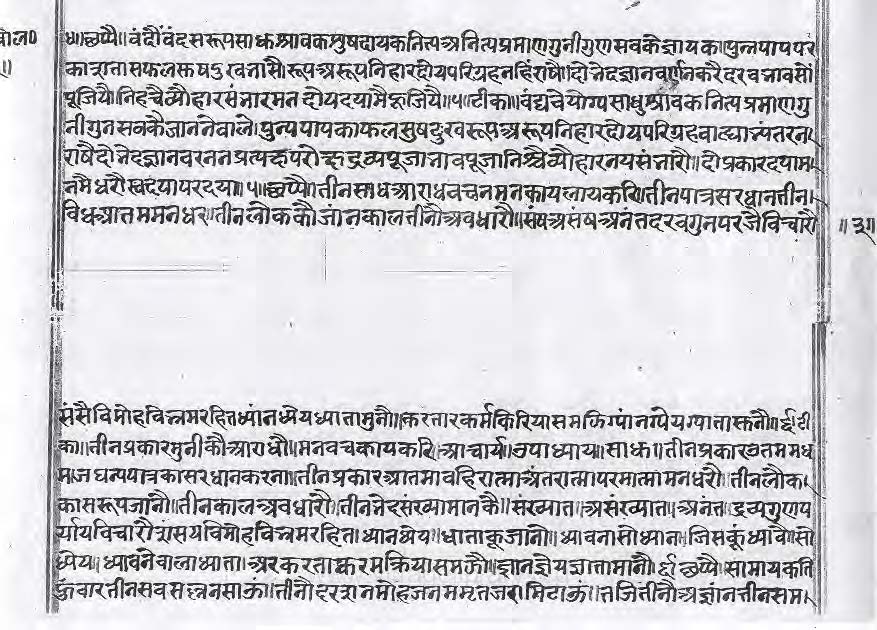 बोल०
॥
५॥छप्पै॥वंदौं वंद सरूप साध श्रावक सुषदायक नित्य अनित्य प्रमाण गुनी गुण सव कै ज्ञायक॥पुन्न पाप पर
परिग्रह नहिं राषै॥दो भेद ज्ञान वर्णन करै दरव भाव सौं
पूजियै॥निहचै व्यौहार संभार मन दोय दया मै हूजियै॥५॥टीका॥वंद्यवे योग्य साधु श्रावक नित्य प्रमाण गु
नी गुन सव कै जानने वाले॥पुन्य पाप का फल सुष दुःख रूप अरूप निहार दोय परिग्रह वाह्याभ्यंतर न
राषै दो भेद ज्ञान वरनन प्रत्यक्ष परोक्ष द्रव्य पूजा भाव पूजा निश्चै व्यौहार नय संभारौ॥दो प्रकार दया म
न मै धरौ स्वदया पर दया॥५॥छप्पै॥तीन साध आराध वचन मन काय लाय करि॥तीन पात्र सरधान तीन
विध आतम मन धर॥तीन लोक कौ जांन काल तीनौ अवधारौ॥संष असंष अनंत दरव गुन परजै विचारौ
॥३॥
संसै विमोह विभ्रम रहित ध्यांन ध्येय ध्याता मुनौ॥करतार कर्म किरिया समझि ग्यांन ग्येय ग्याता भनौ॥६॥टी
का॥तीन प्रकार मुनी कौ आराधौ॥मन वच काय करि॥आचार्य॥उपाध्याय॥साध॥तीन प्रकार उतम मध
म जघन्य पात्र का सरधान करना॥तीन प्रकार आतमा वहिरात्मा अंतरात्मा परमात्मा मन धरौ॥तीन लौक
का सरूप जानौ॥तीन काल अवधारौ॥तीन भेद संख्या मान कै॥संख्यात॥असंख्यात॥अनंत॥द्रव्य गुण प
र्याय विचारौ॥संसय विमोह विभ्रम रहित॥ध्यान ध्येय॥ध्याता कू जानौ॥ध्यावना सो ध्यान॥जिस कूं ध्यावै॥सो
ध्येय॥ध्यावने वाला ध्याता॥अर करता कर्म क्रिया समझौ॥ज्ञान ज्ञेय ज्ञाता मानौ॥६॥छप्पै॥सामायक ति
हुं वार तीन सव सल्लन साऊं॥तीनौ दरशन मोह जनम मृत जरा मिटाऊं॥तजि तीनौ अज्ञांन तीन सम